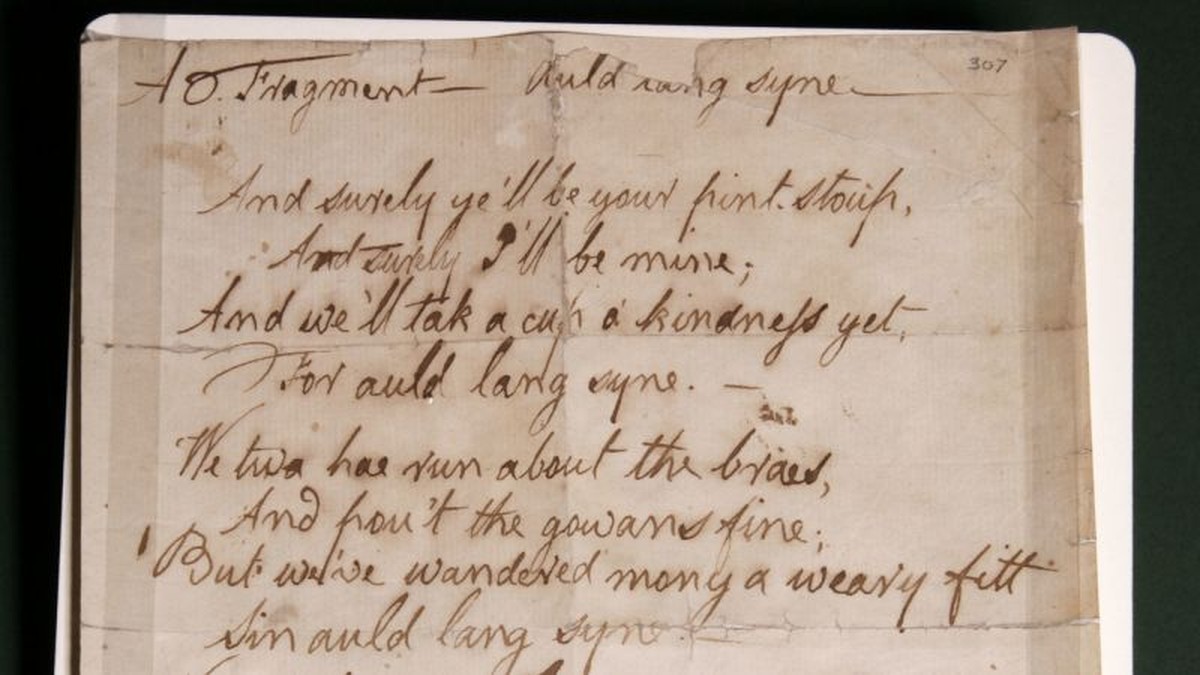 A O. Fragment — Auld lang syne.
307
And surely ye'll be your pint-stoup,
And surely I'll be mine;
And we'll tak a cup o' kindneſs yet,
For auld lang syne. —
We twa hae run about the braes,
And pou't the gowans fine;
But we've wandered mony a weary fitt
Sin auld lang syne.